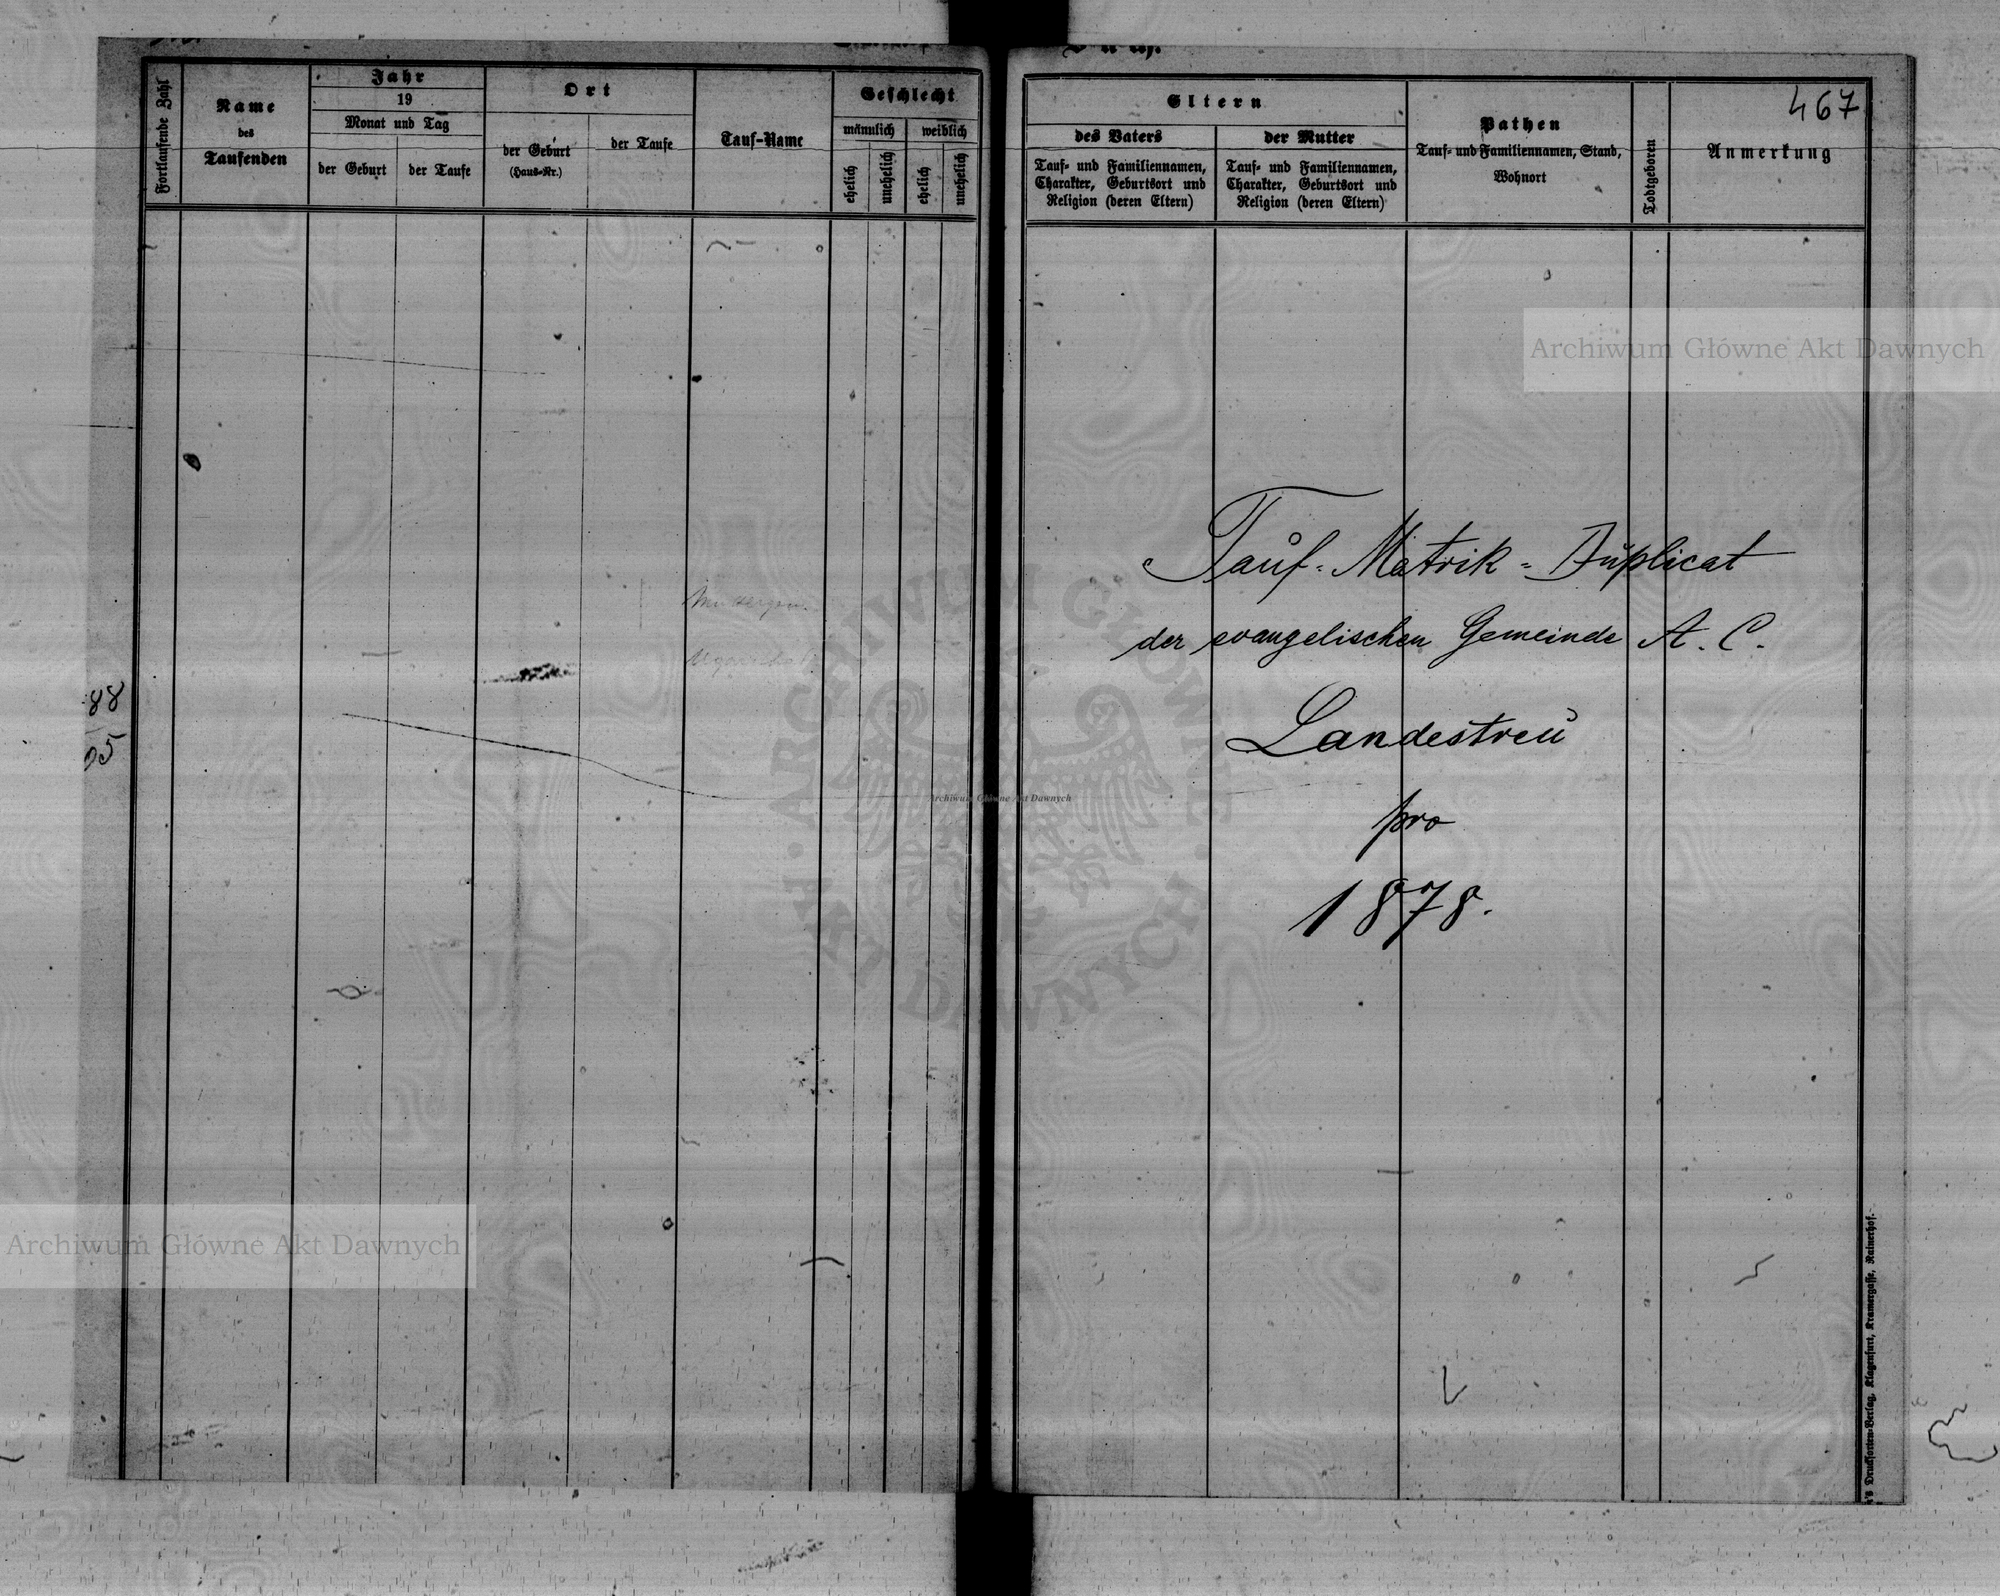 Fortlaufende Zahl
Name
des
Taufenden
Jahr
19
Monat und Tag
der Geburt
der Taufe
Ort
der Geburt
(Haus-Nr.)
der Taufe
Tauf-Name
Geschlecht
männlich
weiblich
ehelich
unehelich
ehelich
unehelich
88
Eltern
des Vaters
Tauf- und Familiennamen,
Charakter, Geburtsort und
Religion (deren Eltern)
der Mutter
Tauf- und Familiennamen,
Charakter, Geburtsort und
Religion (deren Eltern)
Pathen
Tauf- und Familiennamen, Stand,
Wohnort
Todtgeboren
467
Anmerkung
Tauf-Matrik-Duplicat
der evangelischen Gemeinde A. C.
Landestreu
pro
1878.
Drucksorten-Verlag, Klagenfurt, Kramergasse, Rainerhof.
Archiwum Główne Akt Dawnych
Archiwum Główne Akt Dawnych
Archiwum Główne Akt Dawnych
ARCHIWUM GŁÓWNE AKT DAWNYCH